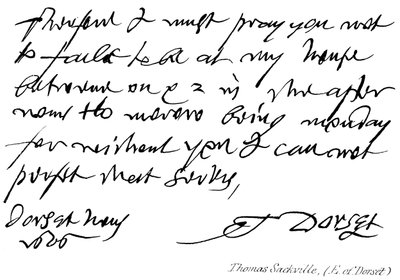 therfore I must pray you not
to faile to be at my house
betwene on & 2 in the after
none to morow being monday
for without you I can not
profit that
Dorset hous
T Dorset
Thomas Sackville, (E. of Dorset)